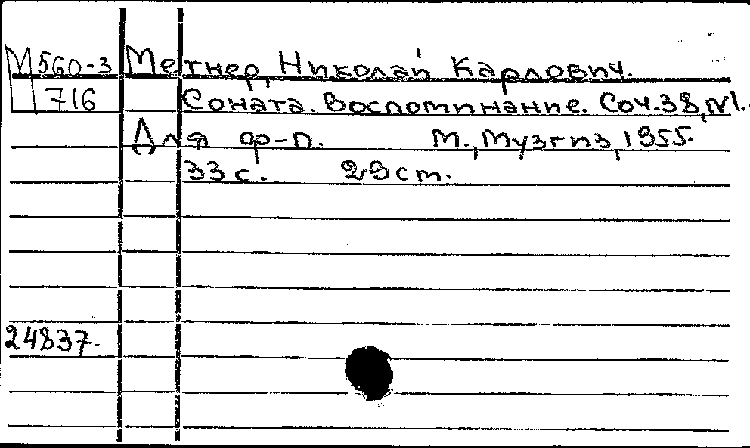 М560-3 Метнер, Николай Карлович.
716 Соната. Воспоминание. Соч.38, №1.
Для ф-п. М., Музгиз, 1955.
33 с. 29 см.
24837.